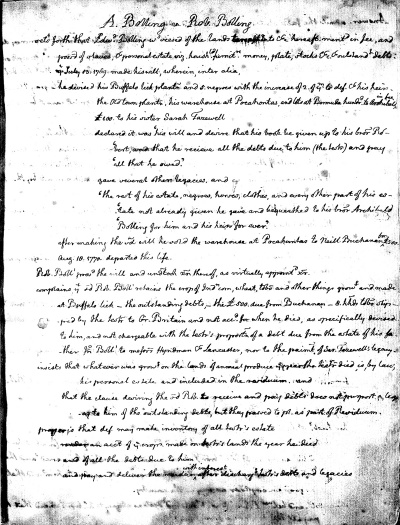 A. Bolling vs Rob. Bolling.
sets forth that Edwd. Bolling was seised of the lands &c hereafr. mentd. in fee, and
possd. of slaves, & personal estate viz. househ. furnit. money, plate, stocks &c & outstandg. debts.
July 13. 1769. made his will, wherein inter alia.
he devised his Buffalo lick plantn. and 5. negroes with the increase of 2. of ym. to def. & his heirs.
the Old town plantn, his warehouse at Pocahontas, and lots at Bermuda hundd. to Archibald
£100. to his sister Sarah Tazewell
declared it was his will and desire that his book be given up to his bror. Ro-
bert, and that he receive all the debts due to him (the testr.) and pay
all that he owed.
gave several other legacies, and
'the rest of his estate, negroes, horses, clothes, and every other part of his es-
tate not already given he gave and bequeathed to his bror. Archibald
Bolling for him and his heirs for ever.'
after making the sd. will he sold the warehouse at Pocahontas to Neill Buchanan for £500.
Aug. 10. 1770. departed this life.
Rob. Boll. provd. the will and undertook exn. thereof, as virtually appointd. exr.
complains yt. sd. Rob. Boll. retains the crops of Ind. corn, wheat, tobo. and other things growg. and made
at Buffalo lick – the outstanding debts, – the £500. due from Buchanan – 8. hhds. tobo. ship-
ped by the testr. to Gr. Britain and not acctd. for when he died, as specifically devised
to him, and not chargeable with the testr's. proportn. of a debt due from the estate of his fa-
ther Jn. Boll. to messrs. Hyndman & Lancaster, nor to the paimt. of Sar. Tazewell's legacy –
insists that whatever was growg. on the lands of annual produce when the testr. died is, by law,
his personal estate and included in the residuum. and
that the clause desiring the sd. Rob. to receive and pay debts does not import a legacy
to him of the outstanding debts, but they passed to pl. as part of Residuum.
prays that def. may make inventory of all testr's. estate
an acct. of ye. crops made on testr's. lands the year he died
and of all the debts due to him
and pay and deliver the residue with interest after discharg. testr's. debts and legacies